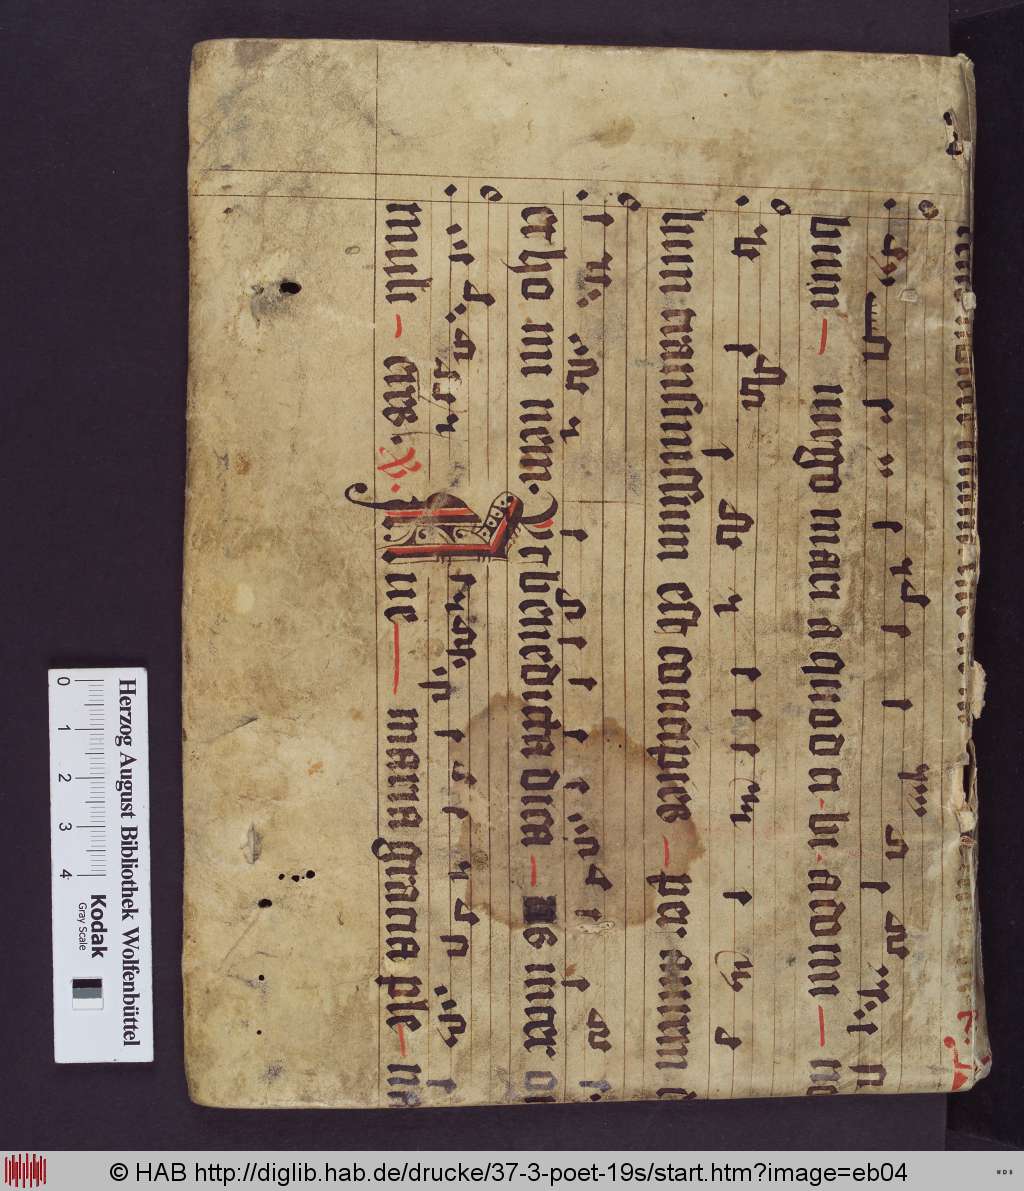 bum virgo mari a quod ti bi a domi no
lum transmissum est concipies per aurem d
et ho mi nem. Ut benedicta dica ris inter o
mulie res. V. A ue maria gracia ple na
Herzog August Bibliothek Wolfenbüttel
0 1 2 3 4
Kodak
Gray Scale
© HAB http://diglib.hab.de/drucke/37-3-poet-19s/start.htm?image=eb04